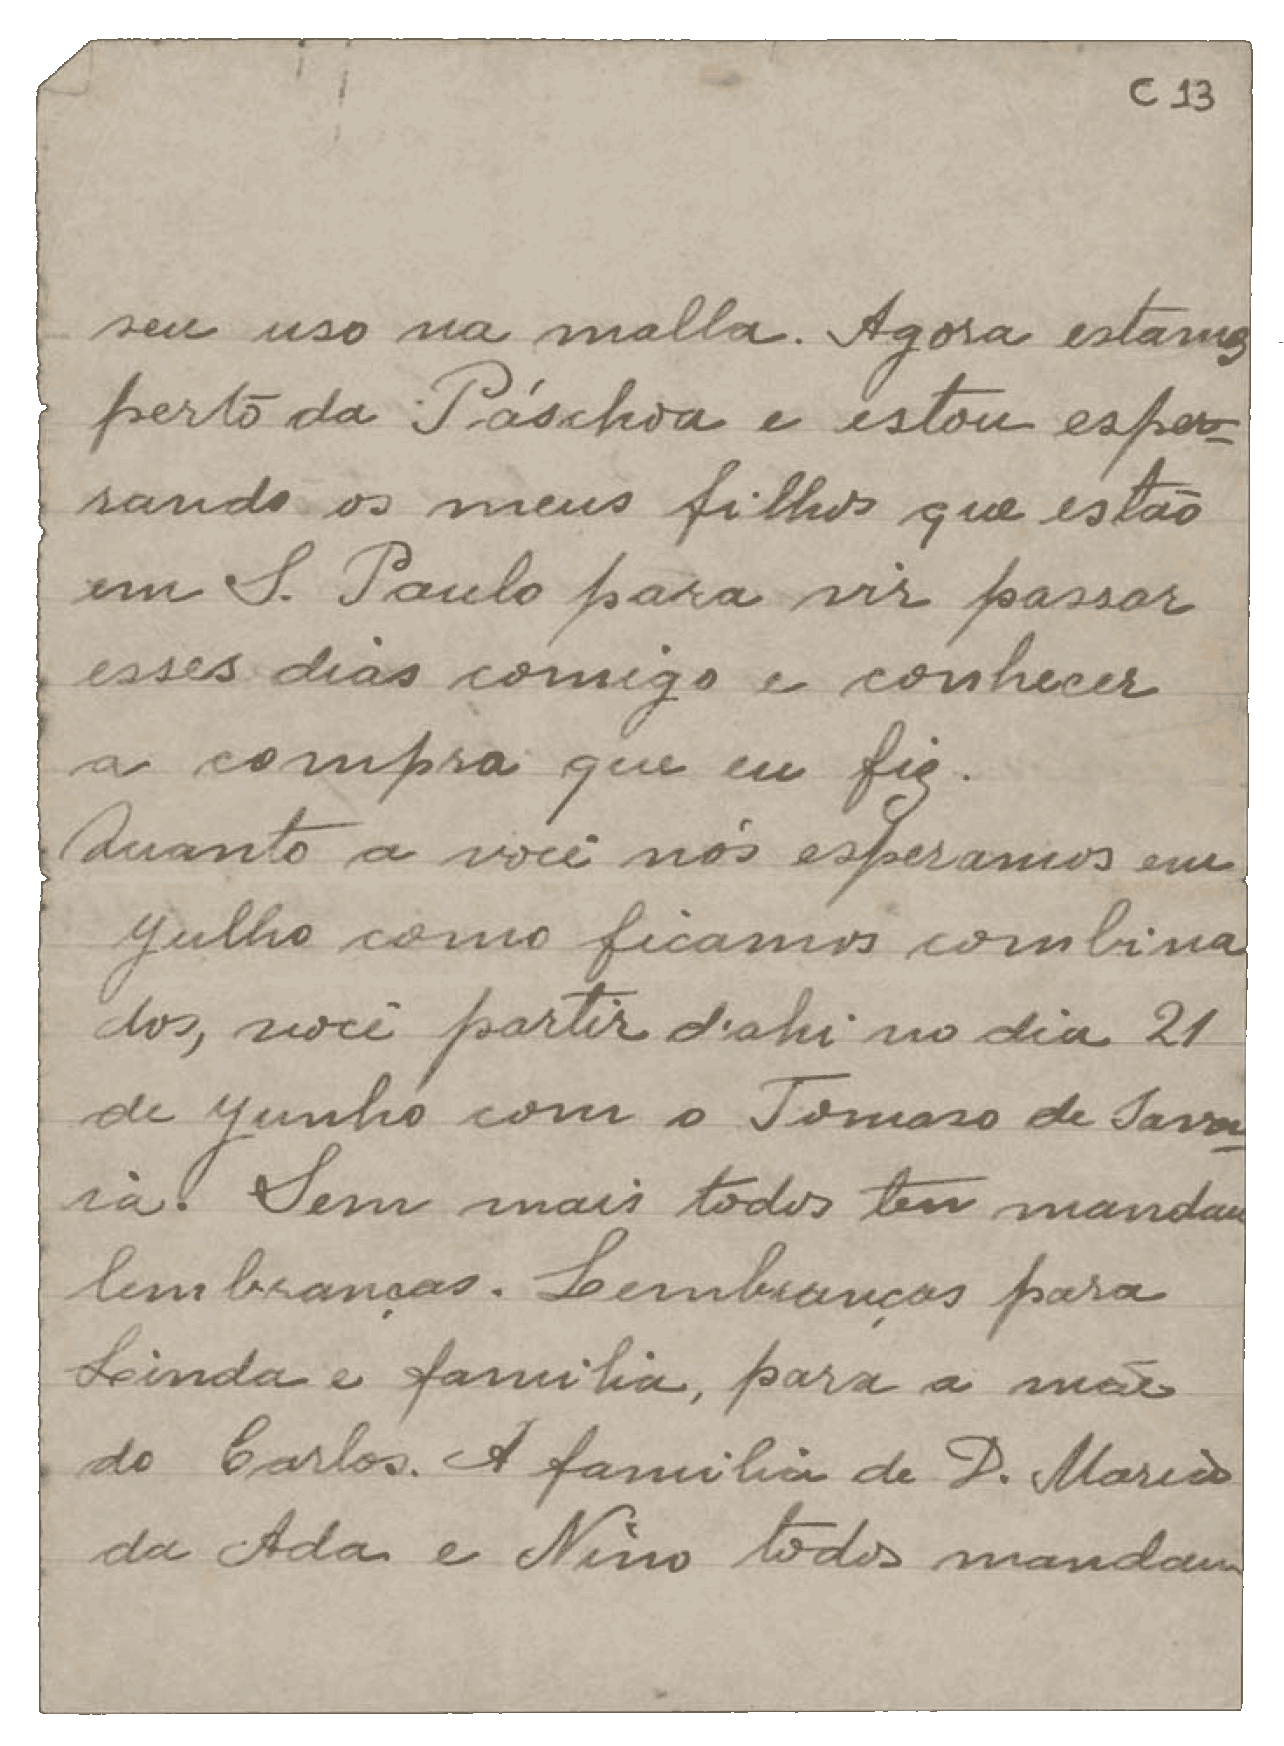 C 13
seu uso na malla. Agora estamos
perto da Páschoa e estou espe-
rando os meus filhos que estão
em S. Paulo para vir passar
esses dias comigo e conhecer
a compra que eu fiz.
Quanto a você nós esperamos em
Julho como ficamos combina
dos, você partir d'ahi no dia 21
de Junho com o Tomaso de
Sem mais todos mandam
lembranças. Lembranças para
Linda e familia, para a mãe
do Carlos. A familia de D. Maria
da Ada e Nino todos mandam